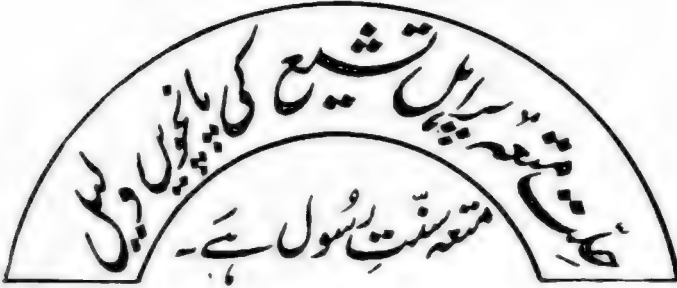 حلتِ متعہ پر اہل تشیع کی پانچویں دلیل
متعہ سنّتِ رسُول ہَے۔